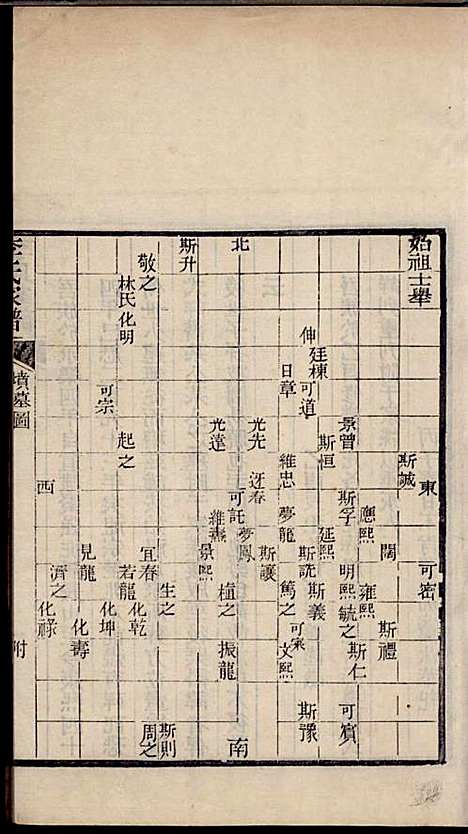 始祖士舉
東
可密
斯誠
闊
斯禮
應熙
雍熙
景曾
斯孚
明熙
毓之
斯仁
可賓
斯恒
延熙
伸
廷棟
可道
斯詵
斯義
斯豫
日章
維忠
夢龍
篤之
可宗
文熙
光先
迓春
斯讓
北
可託
夢鳳
南
光遠
維燾
景熙
植之
振龍
斯升
斯則
生之
敬之
宜春
化乾
周之
林氏
化明
起之
若龍
可宗
化坤
見龍
化壽
西
濟之
化祿
氏家譜
墳墓圖
附